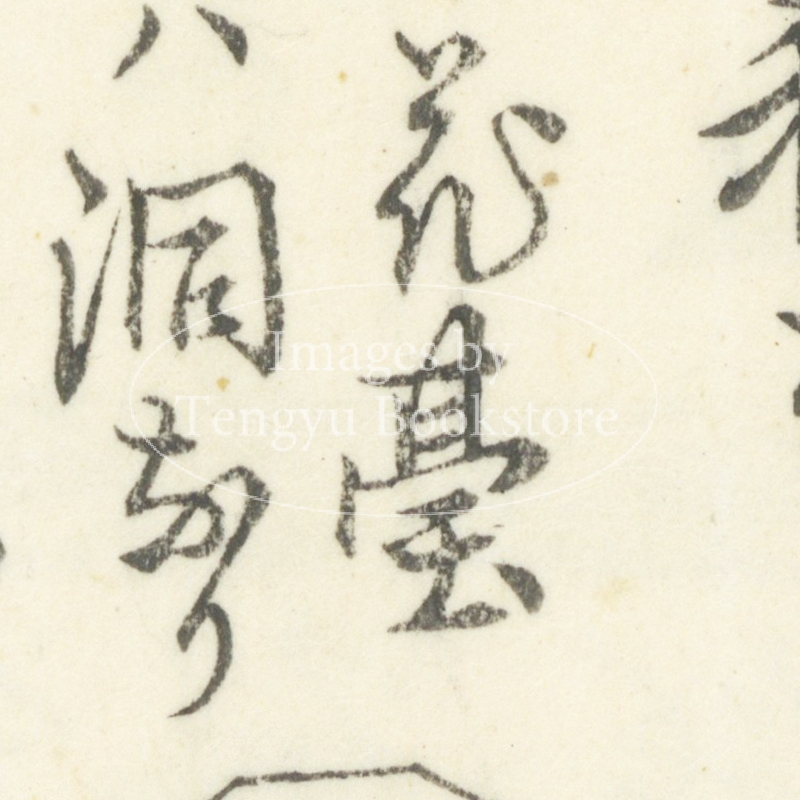 花臺
八洞なり
Images by
Tengyu Bookstore